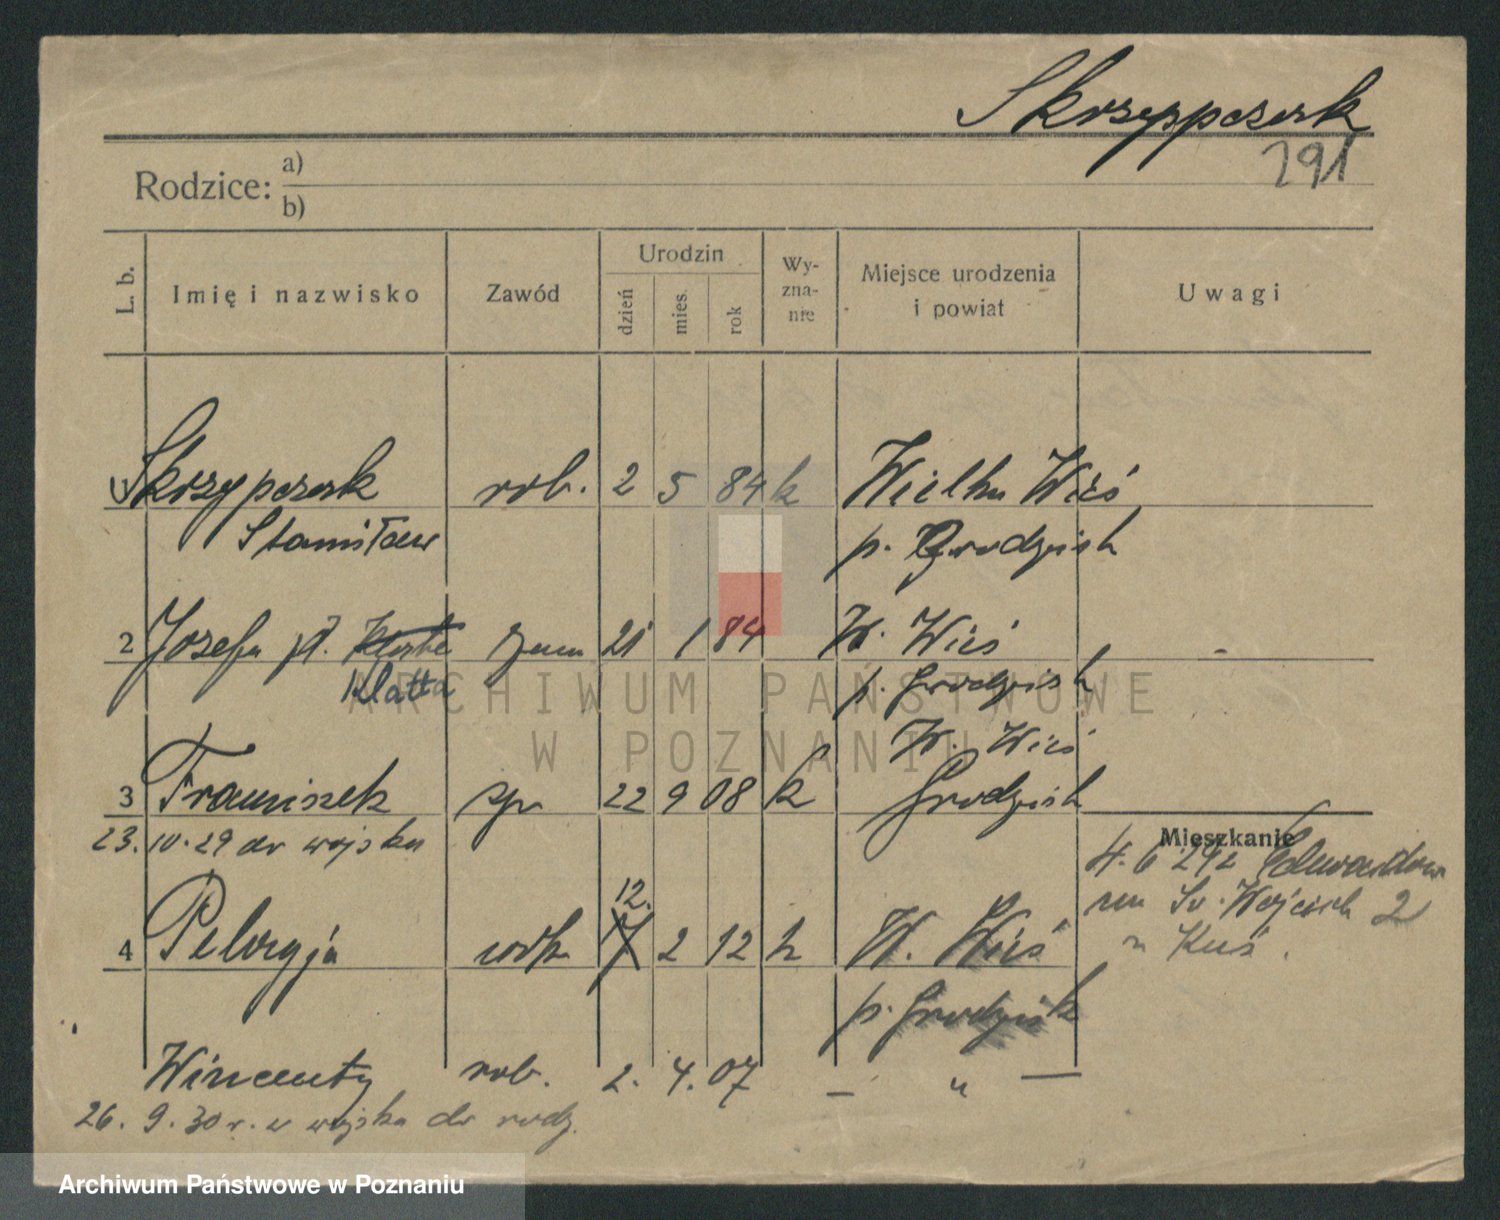 Skrzypczak
291
Rodzice: a)
b)
L. b. Imię i nazwisko Zawód Urodzin dzień mies. rok Wy-zna-nie Miejsce urodzenia i powiat Uwagi
Skrzypczak rob. 2 5 84 k Wielka Wieś
Stanisław p. Grodzisk
2 Józefa żona 21 1 84 W. Wieś
Klatta p. Grodzisk
W. Wieś
3 Franciszek 22 9 08 k Grodzisk
23. 10. 29 do wojska
Mieszkanie
4. 6 292
św. Wojciech 2
12.
4 Pelagja 17 2 12 k W. Wieś
p. Grodzisk
Wincenty rob. 2. 4. 07 — " —
26. 9. 30 r. z wojska do rodz.
ARCHIWUM PAŃSTWOWE
W POZNANIU
Archiwum Państwowe w Poznaniu